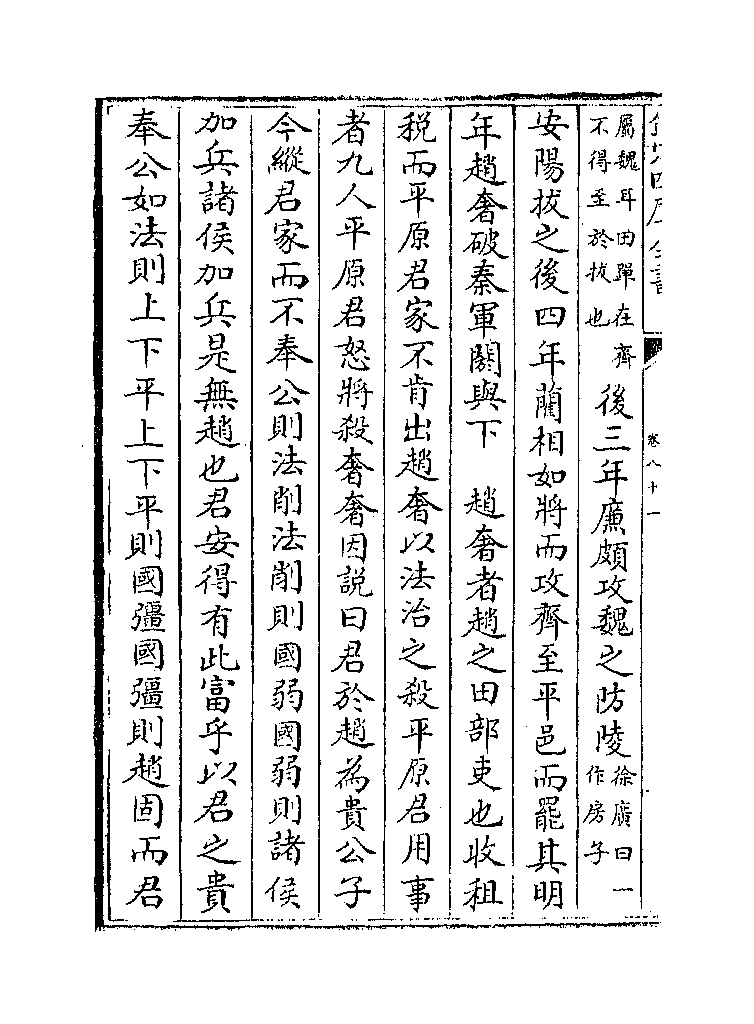 屬魏耳田單在齊
不得至於拔也
後三年廉頗攻魏之防陵
徐廣曰一
作房子
安陽拔之後四年藺相如將而攻齊至平邑而罷其明
年趙奢破秦軍閼與下　趙奢者趙之田部吏也收租
稅而平原君家不肯出趙奢以法治之殺平原君用事
者九人平原君怒將殺奢奢因說曰君於趙為貴公子
今縱君家而不奉公則法削法削則國弱國弱則諸侯
加兵諸侯加兵是無趙也君安得有此富乎以君之貴
奉公如法則上下平上下平則國彊國彊則趙固而君
卷八十一